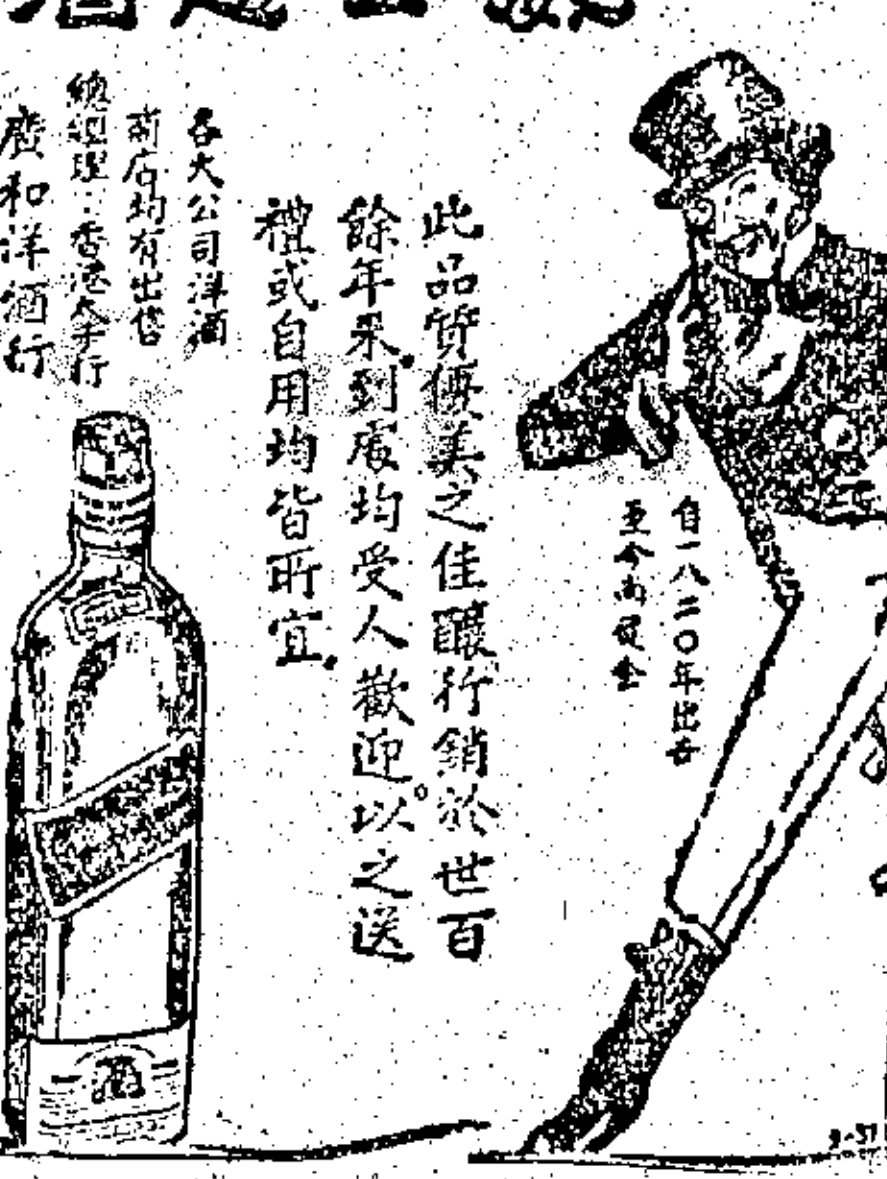 自一八二〇年
至今尚
此品質優美之佳釀行銷於世百
餘年來到處均受人歡迎。以之送
禮或自用均皆所宜
各大公司洋酒
商店均有出售
總經理：香港太子行
廣和洋酒行